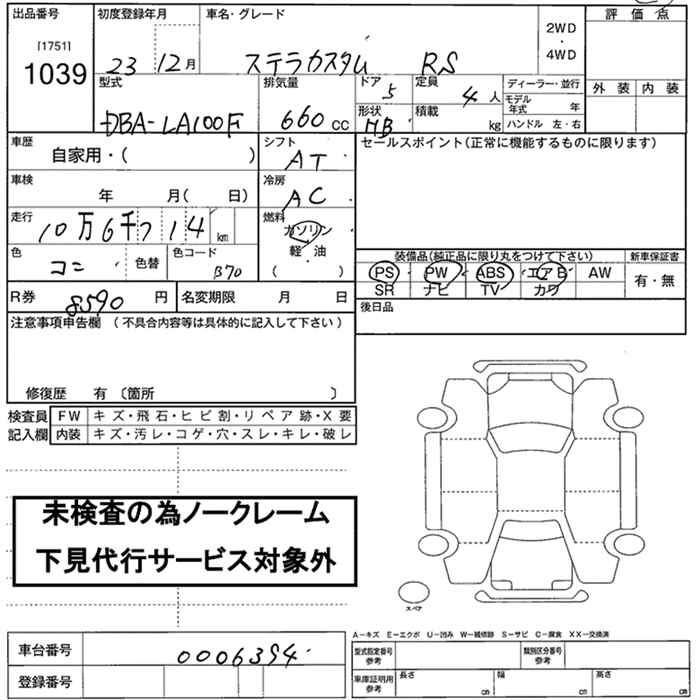 出品番号 初度登録年月 車名・グレード 評価点
[1751] 1039 23 12月 ステラカスタム RS 2WD・4WD
型式 排気量 ドア 定員 ディーラー・並行 外装 内装
DBA-LA100F 660 cc 5 4人 モデル年式 年
形状 積載 HB kg ハンドル 左・右
車歴 シフト セールスポイント(正常に機能するものに限ります)
自家用・( ) AT
車検 冷房
年 月( 日) AC
走行 燃料
10万6千714 km ガソリン・軽油
色 色コード 装備品(純正品に限り丸をつけて下さい) 新車保証書
コン 色替 B70 ( ) PS PW ABS エアB AW 有・無
SR ナビ TV カワ
R券 8590円 名変期限 月 日 後日品
注意事項申告欄 (不具合内容等は具体的に記入して下さい)
修復歴 有 〔箇所 〕
検査員 FW キズ・飛石・ヒビ割・リペア跡・X要
記入欄 内装 キズ・汚レ・コゲ・穴・スレ・キレ・破レ
未検査の為ノークレーム
下見代行サービス対象外
スペア
A-キズ E-エクボ U-凹み W-補修跡 S-サビ C-腐食 XX-交換済
車台番号 0006394 型式指定番号 参考 類別区分番号 参考
登録番号 車庫証明用 参考 長さ cm 幅 cm 高さ cm